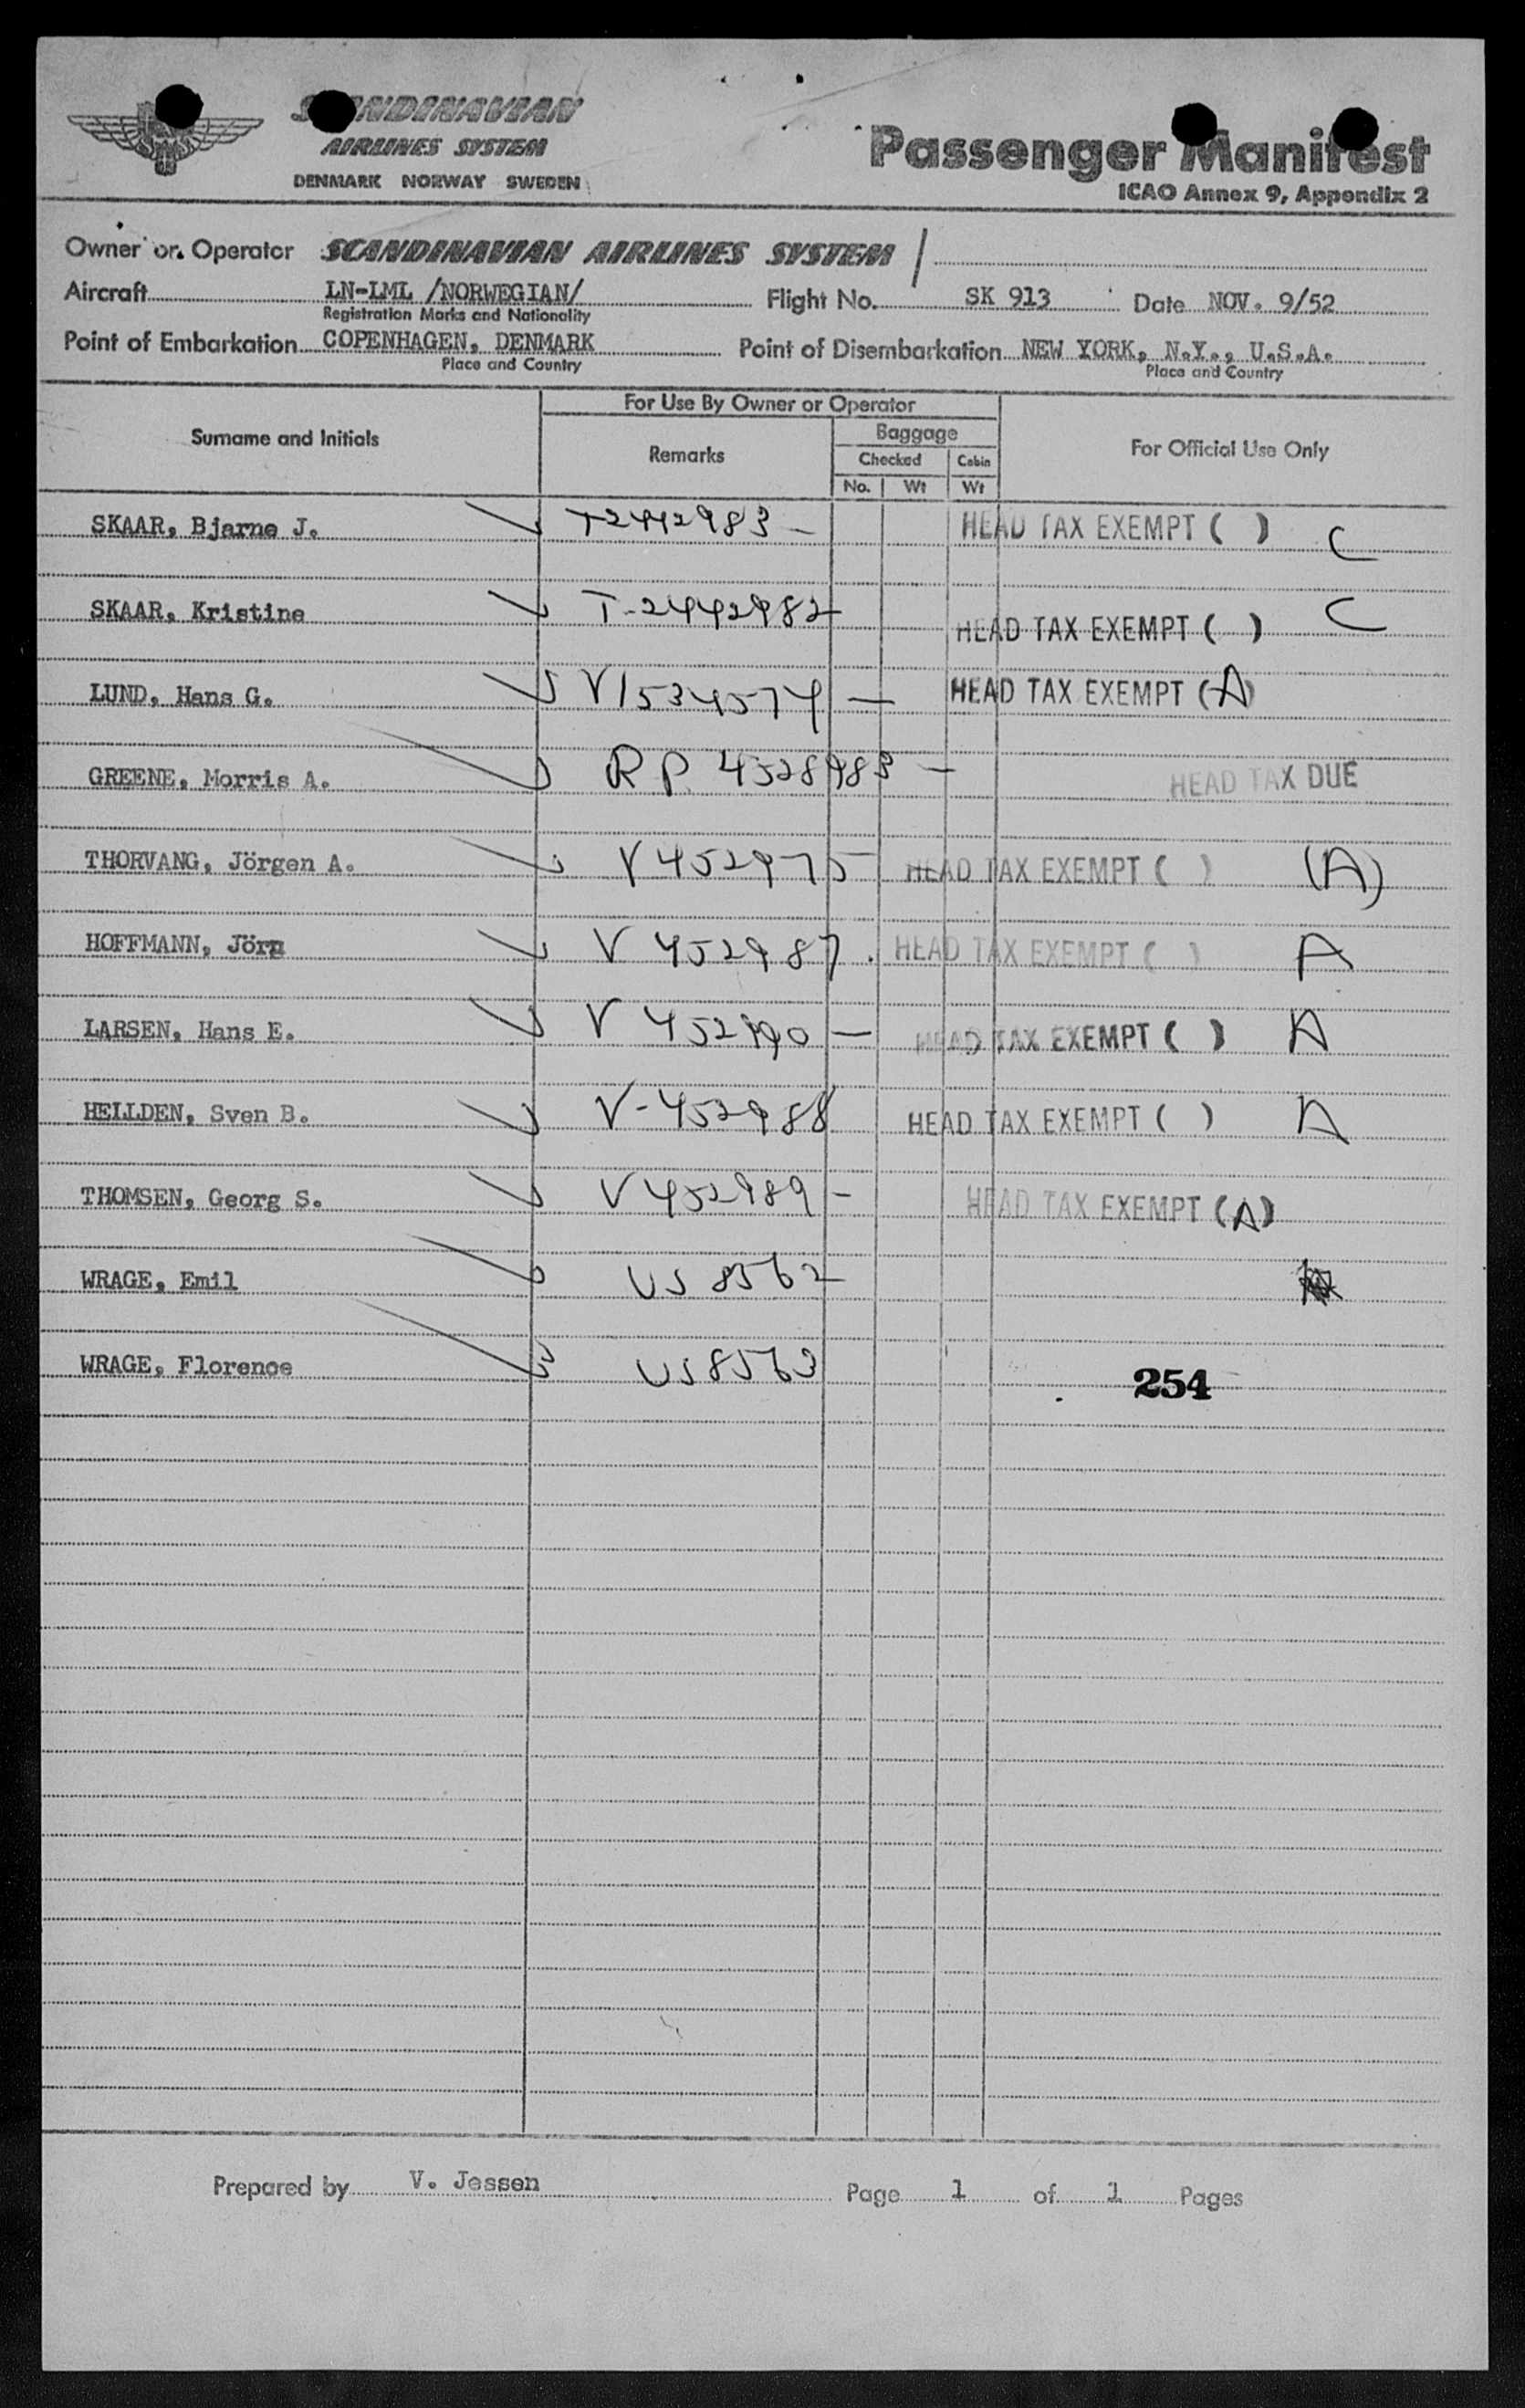 SCANDINAVIAN
AIRLINES SYSTEM
DENMARK NORWAY SWEDEN
Passenger Manifest
ICAO Annex 9, Appendix 2
Owner or Operator SCANDINAVIAN AIRLINES SYSTEM /
Aircraft LN-LML /NORWEGIAN/ Flight No. SK 913 Date NOV. 9/52
Registration Marks and Nationality
Point of Embarkation COPENHAGEN, DENMARK Point of Disembarkation NEW YORK, N.Y., U.S.A.
Place and Country Place and Country
For Use By Owner or Operator
Surname and Initials Remarks Baggage For Official Use Only
Checked Cabin
No. Wt Wt
SKAAR, Bjarne J. T2442983 - HEAD TAX EXEMPT ( ) C
SKAAR, Kristine T-2442982 HEAD TAX EXEMPT ( ) C
LUND, Hans G. V1534574 - HEAD TAX EXEMPT (A)
GREENE, Morris A. RP. 4528983 - HEAD TAX DUE
THORVANG, Jörgen A. V452975 HEAD TAX EXEMPT ( ) (A)
HOFFMANN, Jörn V 452987 . HEAD TAX EXEMPT ( ) A
LARSEN, Hans E. V 452990 - HEAD TAX EXEMPT ( ) A
HELLDEN, Sven B. V-452988 HEAD TAX EXEMPT ( ) A
THOMSEN, Georg S. V452989 - HEAD TAX EXEMPT (A)
WRAGE, Emil US 8562
WRAGE, Florence US8563
254
Prepared by V. Jessen Page 1 of 1 Pages